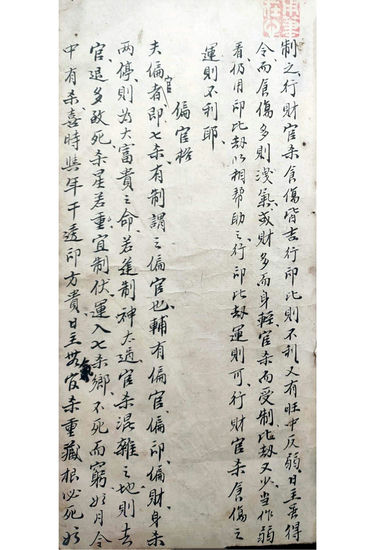 制之行財官杀食傷皆吉行印比則不利又有旺中反弱日主专得
令而食傷多則洩氣或財多而身輕官杀而受制比劫又少当作弱
看仍用印比劫以相幫助之行印比劫運則可行財官杀食傷之
運則不利耶
偏官格
夫偏官者即七杀有制謂之偏官也輔有偏官偏印偏財身杀
两停則為大富貴之命若逢制神太过官杀混雜之地則去
官退多致死杀星若重宜制伏運入七杀鄉不死而窮如月令
中有杀喜時與年干透印方貴日主無氣官杀重藏根必死如